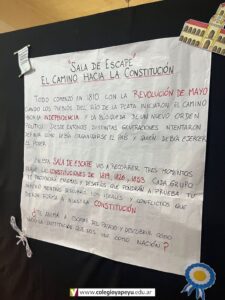 "SALA DE ESCAPE"
EL CAMINO HACIA LA CONSTITUCIÓN
TODO COMENZÓ EN 1810 CON LA REVOLUCIÓN DE MAYO
CUANDO LOS PUEBLOS DEL RÍO DE LA PLATA INICIARON EL CAMINO
HACIA LA INDEPENDENCIA Y LA BÚSQUEDA DE UN NUEVO ORDEN
POLÍTICO. DESDE ENTONCES DISTINTAS GENERACIONES INTENTARON
DEFINIR CÓMO DEBÍA ORGANIZARSE EL PAÍS Y QUIÉN DEBÍA EJERCER
EL PODER.
EN ESTA SALA DE ESCAPE VAS A RECORRER TRES MOMENTOS
CLAVE: LAS CONSTITUCIONES DE 1819, 1826, 1853. CADA GRUPO
ENIGMAS Y DESAFÍOS QUE PONDRÁN A PRUEBA TU
MIENTRAS LOS IDEALES Y CONFLICTOS QUE
DIERON FORMA A NUESTRA CONSTITUCIÓN
¿TE ANIMÁS A ESCAPAR DEL PASADO Y DESCUBRIR CÓMO
LA CONSTITUCIÓN QUE NOS UNE COMO NACIÓN?
www.colegioyapeyu.edu.ar